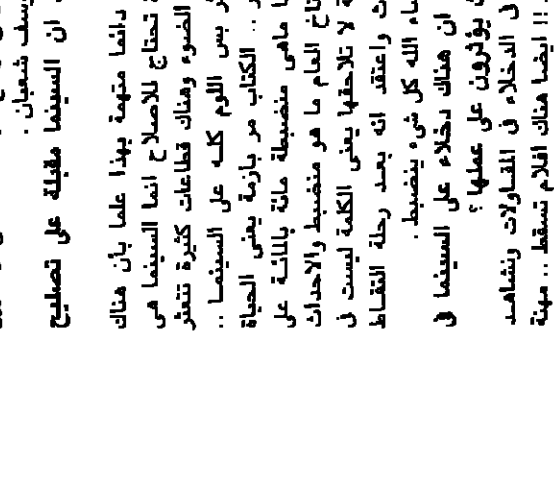 يوسف شعبان .
ان السينما مقبلة على تصليح
دائما متهمة بهذا علما بأن هناك
تحتاج للاصلاح انما السينما هى
الضوء وهناك قطاعات كثيرة تتعثر
بس اللوم كله على السينما ..
.. الكتاب مر بازمة يعنى الحياة
ماهى منضبطة مائة بالمائة على
المناخ العام ما هو منضبط والاحداث
لا تلاحقها يعنى الكلمة ليست فى
واعتقد انه بعد رحلة التقاط
شاء الله كل شىء ينضبط .
ان هناك دخلاء على السينما فى
يؤثرون على عملها ؟
الدخلاء فى المقاولات ونشاهد
!! ايضا هناك افلام تسقط .. مهنة